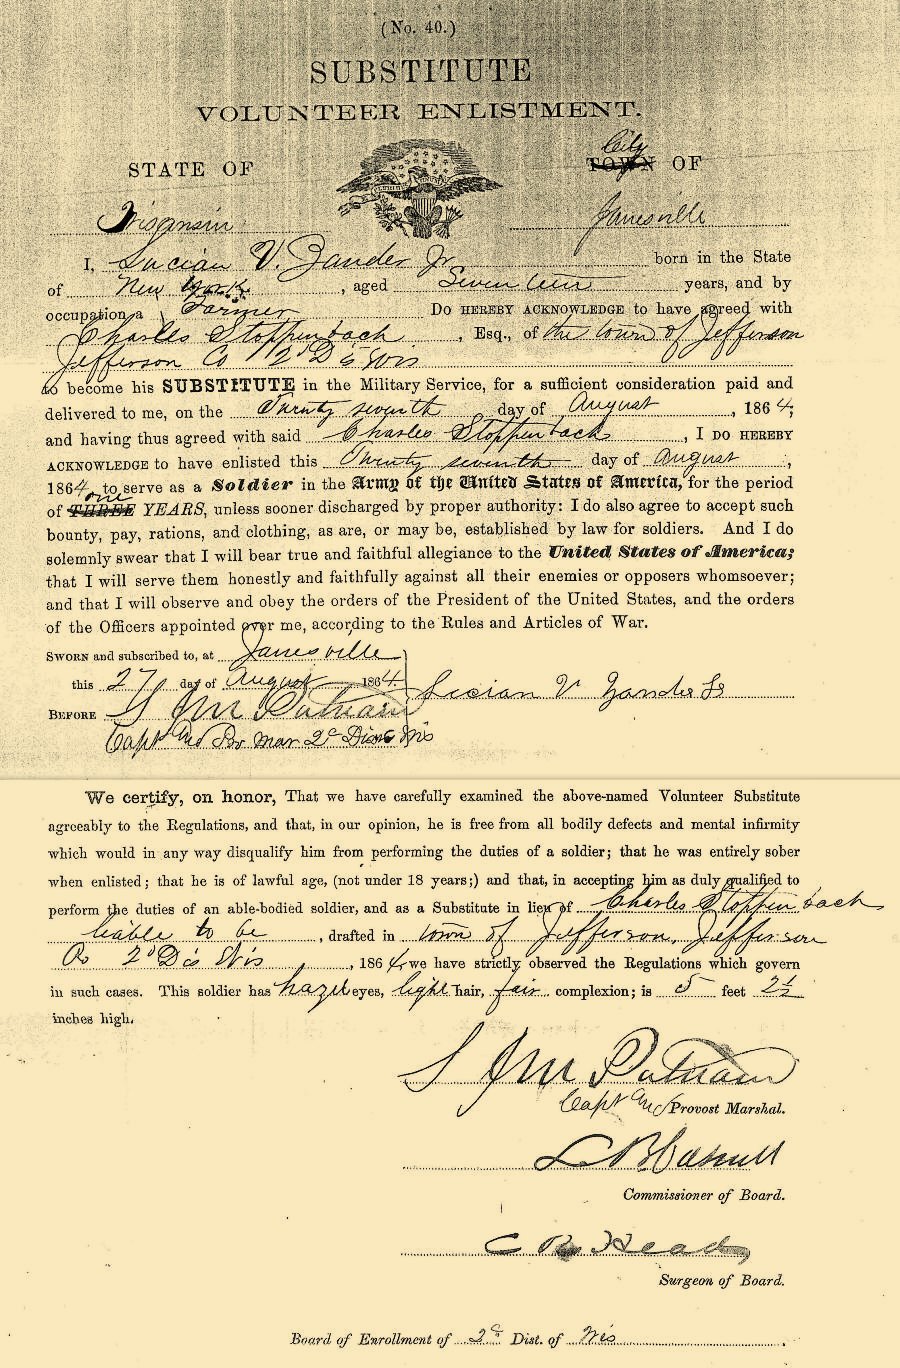 (No. 40.)
SUBSTITUTE
VOLUNTEER ENLISTMENT.
STATE OF
City
TOWN OF
Wisconsin
Janesville
I, Lucian V. Zander Jr born in the State
of New York, aged Seventeen years, and by
occupation a Farmer Do HEREBY ACKNOWLEDGE to have agreed with
Charles Stoppenbach, Esq., of the town of Jefferson
Jefferson Co 2d Dis Wis
to become his SUBSTITUTE in the Military Service, for a sufficient consideration paid and
delivered to me, on the Twenty seventh day of August, 1864;
and having thus agreed with said Charles Stoppenbach, I DO HEREBY
ACKNOWLEDGE to have enlisted this Twenty seventh day of August,
1864 to serve as a Soldier in the Army of the United States of America, for the period
one
of THREE YEARS, unless sooner discharged by proper authority: I do also agree to accept such
bounty, pay, rations, and clothing, as are, or may be, established by law for soldiers. And I do
solemnly swear that I will bear true and faithful allegiance to the United States of America;
that I will serve them honestly and faithfully against all their enemies or opposers whomsoever;
and that I will observe and obey the orders of the President of the United States, and the orders
of the Officers appointed over me, according to the Rules and Articles of War.
SWORN and subscribed to, at Janesville
this 27 day of August 1864.
Lucian V Zander Jr
BEFORE S J M Putnam
Capt and Pro Mar 2d Dist Wis
We certify, on honor, That we have carefully examined the above-named Volunteer Substitute
agreeably to the Regulations, and that, in our opinion, he is free from all bodily defects and mental infirmity
which would in any way disqualify him from performing the duties of a soldier; that he was entirely sober
when enlisted; that he is of lawful age, (not under 18 years;) and that, in accepting him as duly qualified to
perform the duties of an able-bodied soldier, and as a Substitute in lieu of Charles Stoppenbach
liable to be, drafted in town of Jefferson, Jefferson
Co 2d Dis Wis, 1864 we have strictly observed the Regulations which govern
in such cases. This soldier has hazel eyes, light hair, fair complexion; is 5 feet 2½
inches high.
S J M Putnam
Capt and Provost Marshal.
L B Caswell
Commissioner of Board.
C R Head
Surgeon of Board.
Board of Enrollment of 2d Dist. of Wis.